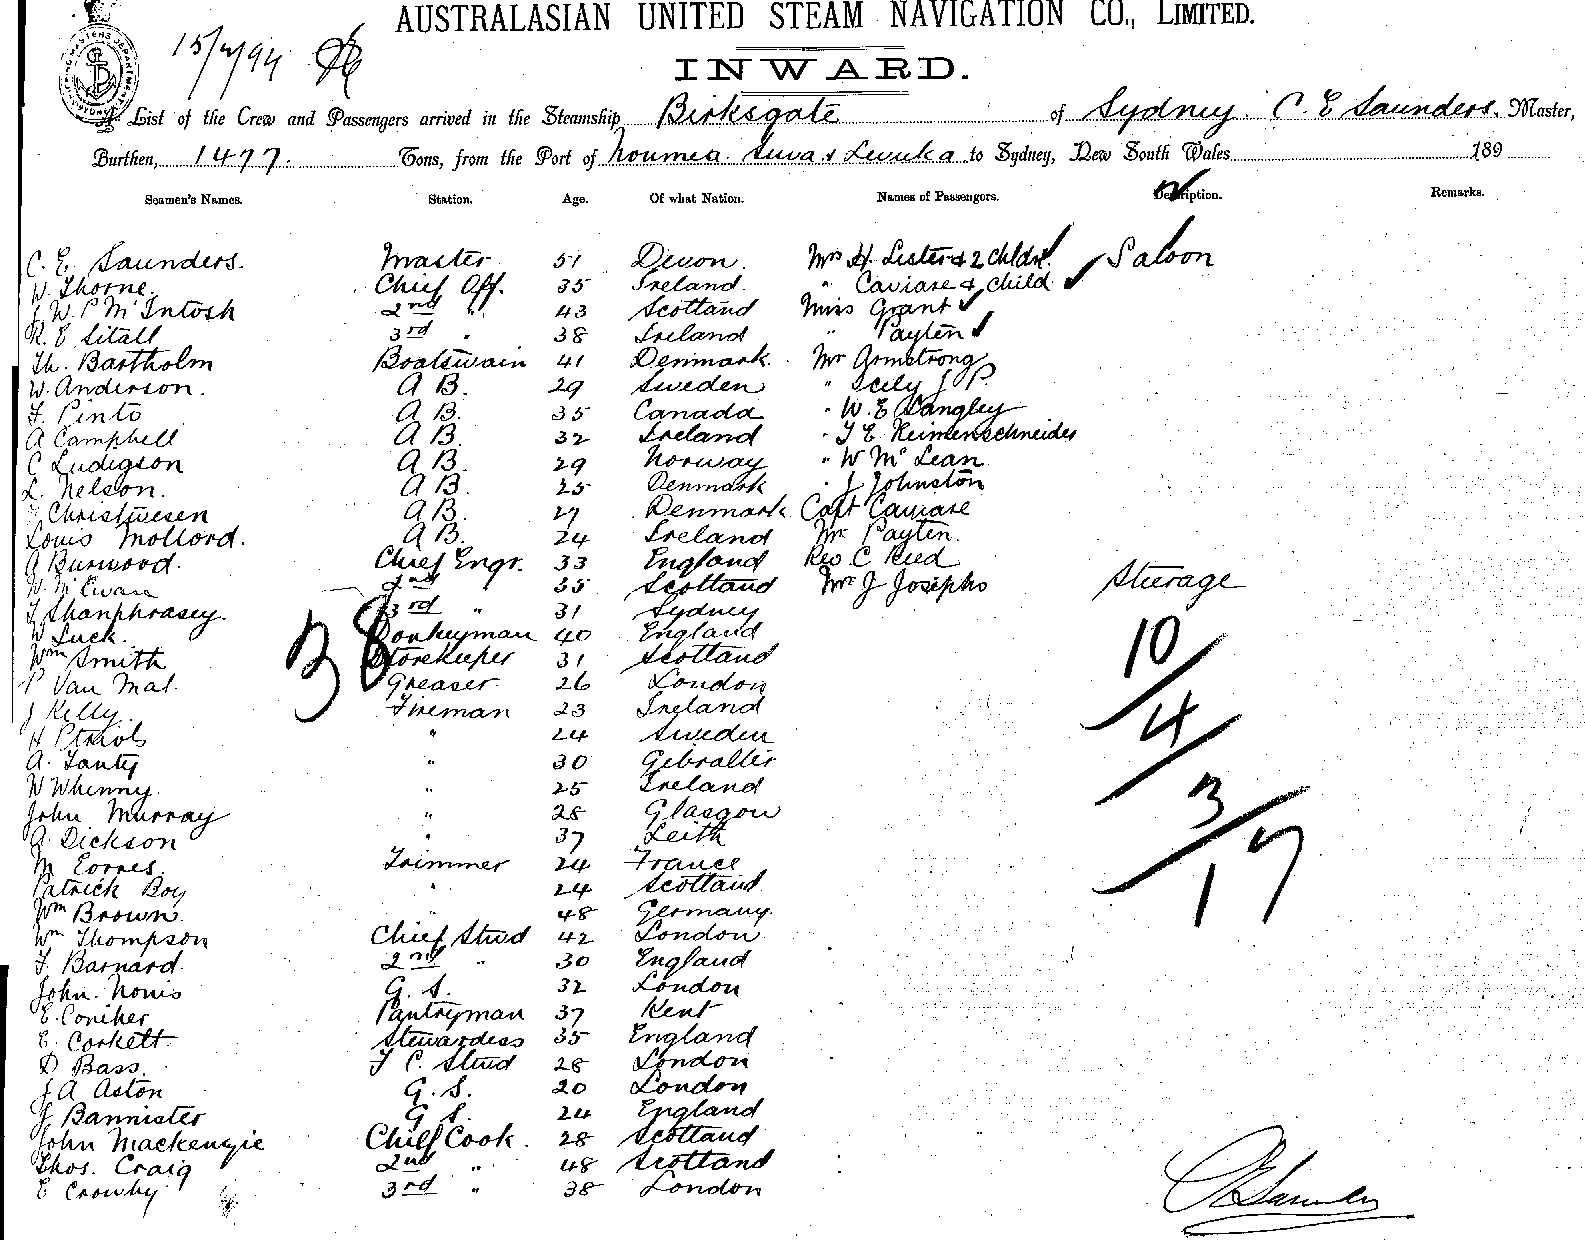 AUSTRALASIAN UNITED STEAM NAVIGATION CO., LIMITED.
15/4/94
INWARD.
List of the Crew and Passengers arrived in the Steamship Birksgate of Sydney C. E Saunders. Master,
Burthen, 1477. Tons, from the Port of Noumea Suva & Levuka to Sydney, New South Wales 189
Seamen's Names. Station. Age. Of what Nation. Names of Passengers. Description. Remarks.
C. E. Saunders. Master 51 Devon. Mrs H. Lister & 2 Chldn. Saloon
W Thorne. Chief Off. 35 Ireland. " Caviare & child
J. W. P McIntosh 2nd " 43 Scotland Miss Grant
R. E Sitall 3rd " 38 Ireland " Payten
Th. Bartholm Boatswain 41 Denmark. Mr Armstrong
W. Anderson. A B. 29 Sweden " Scily J P.
F. Pinto A B. 35 Canada " W. E Langley
A Campbell A B. 32 Ireland " T E Reimenschneider
C Ludigson A B. 29 Norway " W McLean
L. Nelson. A B. 25 Denmark " J Johnston
Christwesen A B. 27 Denmark Capt Caviare
Louis Mollord. A B. 24 Ireland Mr Payten.
A Burwood. Chief Engr. 33 England Rev C Reed
W. McEwan 2nd " 35 Scotland Mr J Josephs Steerage
T Shanphrasey. 3rd " 31 Sydney
W Luck. Donkeyman 40 England
Wm Smith Storekeeper 31 Scotland
P Van Mal. Greaser 26 London
J Kelly. Fireman 23 Ireland
H " 24 Sweden
A. Tanty " 30 Gibralter
W Whinny. " 25 Ireland
John Murray " 28 Glasgow
A. Dickson " 37 Leith
M Torres. Trimmer 24 France
Patrick Boy " 24 Scotland
Wm Brown. " 48 Germany.
Wm Thompson Chief Stwd 42 London
F. Barnard. 2nd " 30 England
John. Nonis G. S. 32 London
E. Coniher Pantryman 37 Kent
E. Corkett Stewardess 35 England
D Bass. F C. Stwd 28 London
J. A Aston G. S. 20 London
J. Bannister G S. 24 England
John Mackenzie Chief Cook. 28 Scotland
Thos. Craig 2nd " 48 Scotland
E Crowhy 3rd " 38 London
38
10/4/3/17
C E Saunders